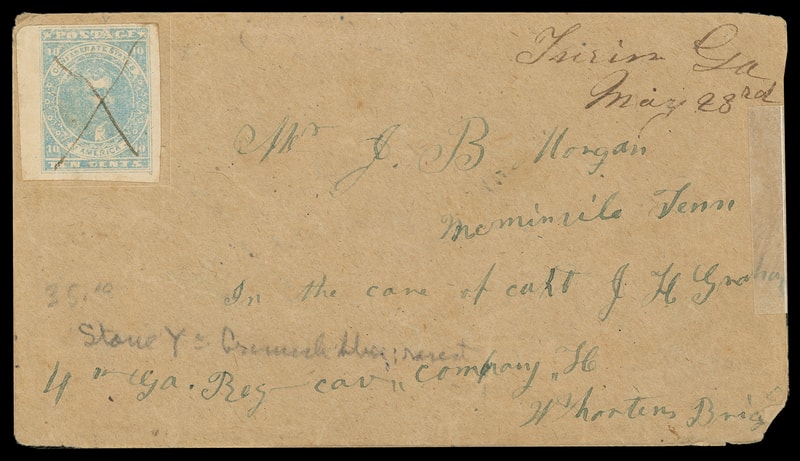 POSTAGE
10 10
CONFEDERATE STATES
OF AMERICA
10 10
TEN CENTS
Ga
May 28rd
Mr J. B Morgan
Meminvile Tenn
In the care of capt J H Graham
35.00
Stone Y =
4th Ga. Reg cav " company " H
Whartens Brig